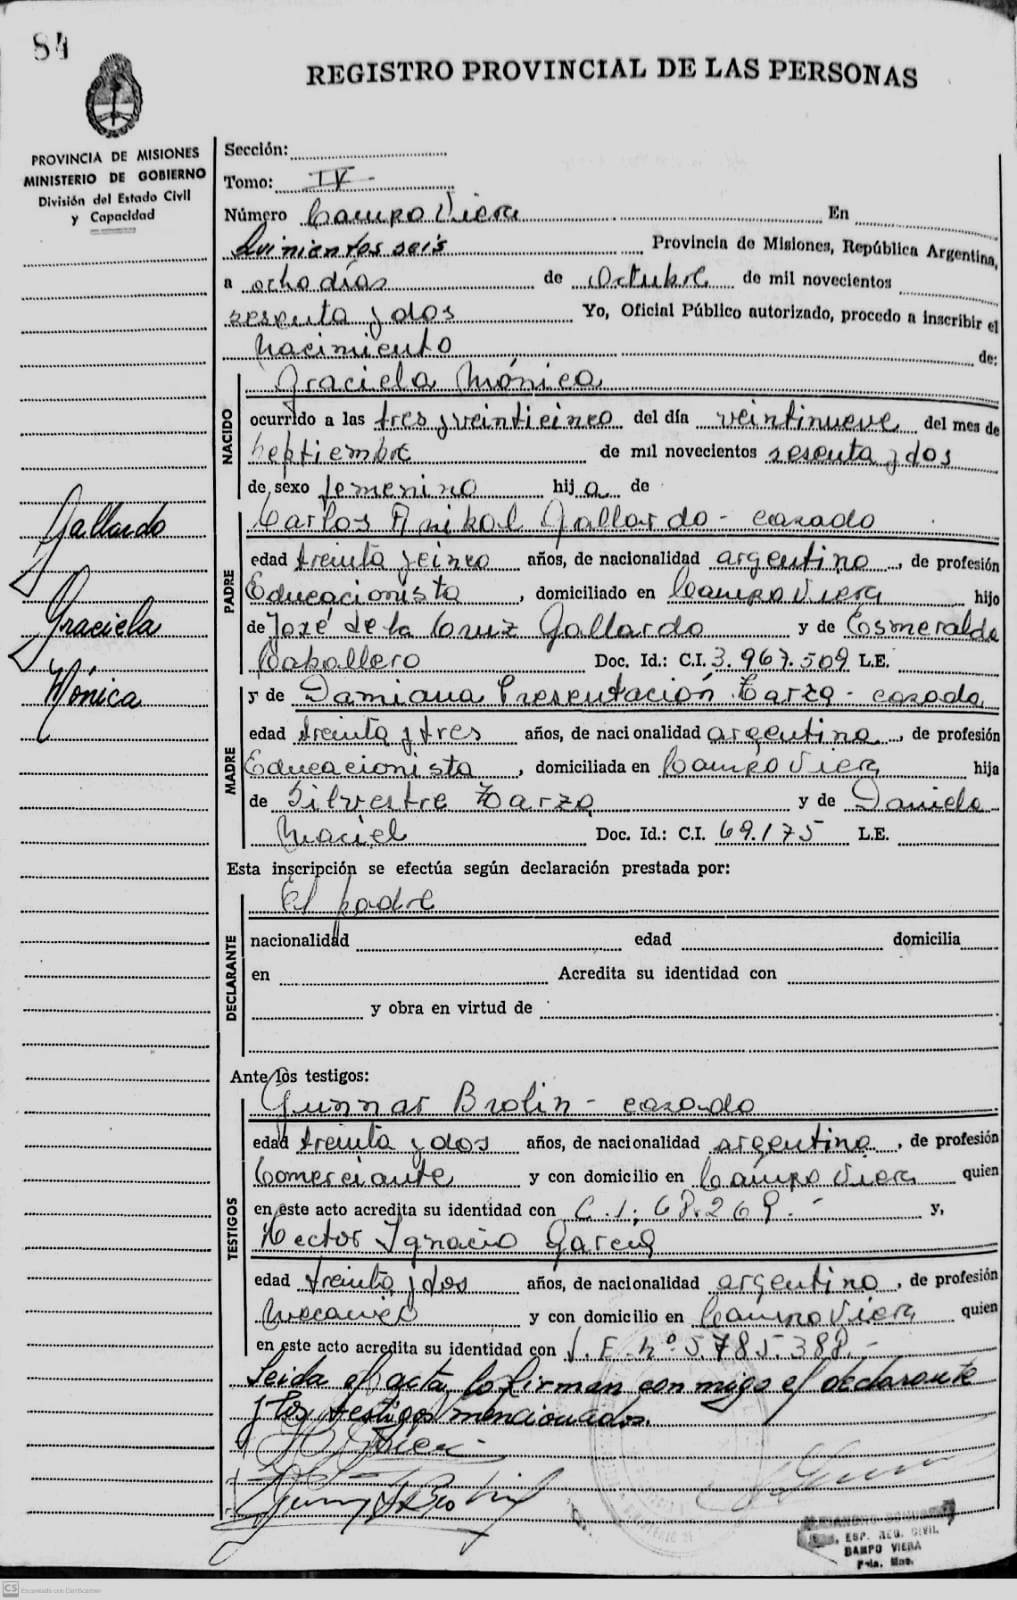 84
REGISTRO PROVINCIAL DE LAS PERSONAS
PROVINCIA DE MISIONES
MINISTERIO DE GOBIERNO
División del Estado Civil
y Capacidad
Sección:
Tomo: IV
Número Campo Viera En
Quinientos seis Provincia de Misiones, República Argentina,
a ocho días de Octubre de mil novecientos
sesenta y dos Yo, Oficial Público autorizado, procedo a inscribir el
Nacimiento de:
NACIDO
Graciela Mónica
ocurrido a las tres y veinticinco del día veintinueve del mes de
Septiembre de mil novecientos sesenta y dos
de sexo femenino hija de
Gallardo
Graciela
Mónica
PADRE
Carlos Anibal Gallardo - casado
edad treinta y cinco años, de nacionalidad argentino, de profesión
Educacionista, domiciliado en Campo Viera hijo
de José de la Cruz Gallardo y de Esmeralda
Caballero Doc. Id.: C.I. 3.967.509 L.E.
MADRE
y de Damiana Presentación Zarza - casada
edad treinta y tres años, de nacionalidad argentina, de profesión
Educacionista, domiciliada en Campo Viera hija
de Silvestre Zarza y de Daniela
Maciel Doc. Id.: C.I. 69.175 L.E.
Esta inscripción se efectúa según declaración prestada por:
DECLARANTE
El padre
nacionalidad edad domicilia
en Acredita su identidad con
y obra en virtud de
Ante los testigos:
TESTIGOS
Gunnar Brolin - casado
edad treinta y dos años, de nacionalidad argentina, de profesión
Comerciante y con domicilio en Campo Viera quien
en este acto acredita su identidad con C.I. 68.269.- y,
Hector Ignacio Garcia
edad treinta y dos años, de nacionalidad argentino, de profesión
Mecanico y con domicilio en Campo Viera quien
en este acto acredita su identidad con L.E. nº 5.785.388.-
Leida el acta, lo firman conmigo el declarante
y los testigos mencionados.
ESP. REG. CIVIL
CAMPO VIERA
Pcia. Mnes.
CS Escaneado con CamScanner